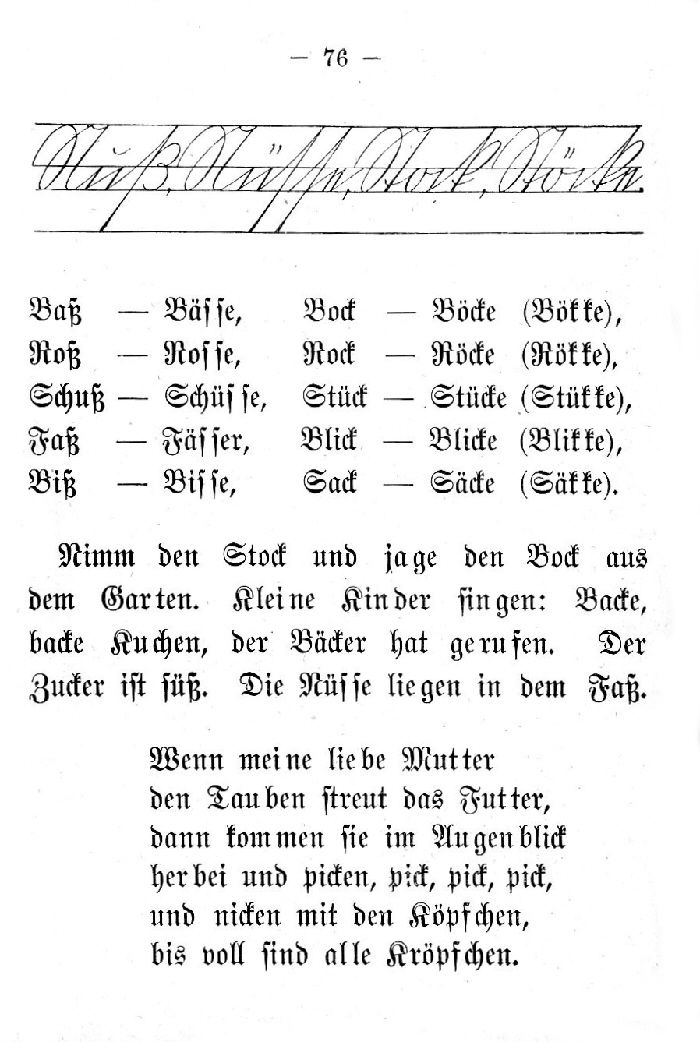 — 76 —
Nuß, Nüsse, Stock, Stöcke.
Baß — Bässe, Bock — Böcke (Bökke),
Roß — Rosse, Rock — Röcke (Rökke),
Schuß — Schüsse, Stück — Stücke (Stükke),
Faß — Fässer, Blick — Blicke (Blikke),
Biß — Bisse, Sack — Säcke (Säkke).
Nimm den Stock und jage den Bock aus
dem Garten. Kleine Kinder singen: Backe,
backe Kuchen, der Bäcker hat gerufen. Der
Zucker ist süß. Die Nüsse liegen in dem Faß.
Wenn meine liebe Mutter
den Tauben streut das Futter,
dann kommen sie im Augenblick
herbei und picken, pick, pick, pick,
und nicken mit den Köpfchen,
bis voll sind alle Kröpfchen.